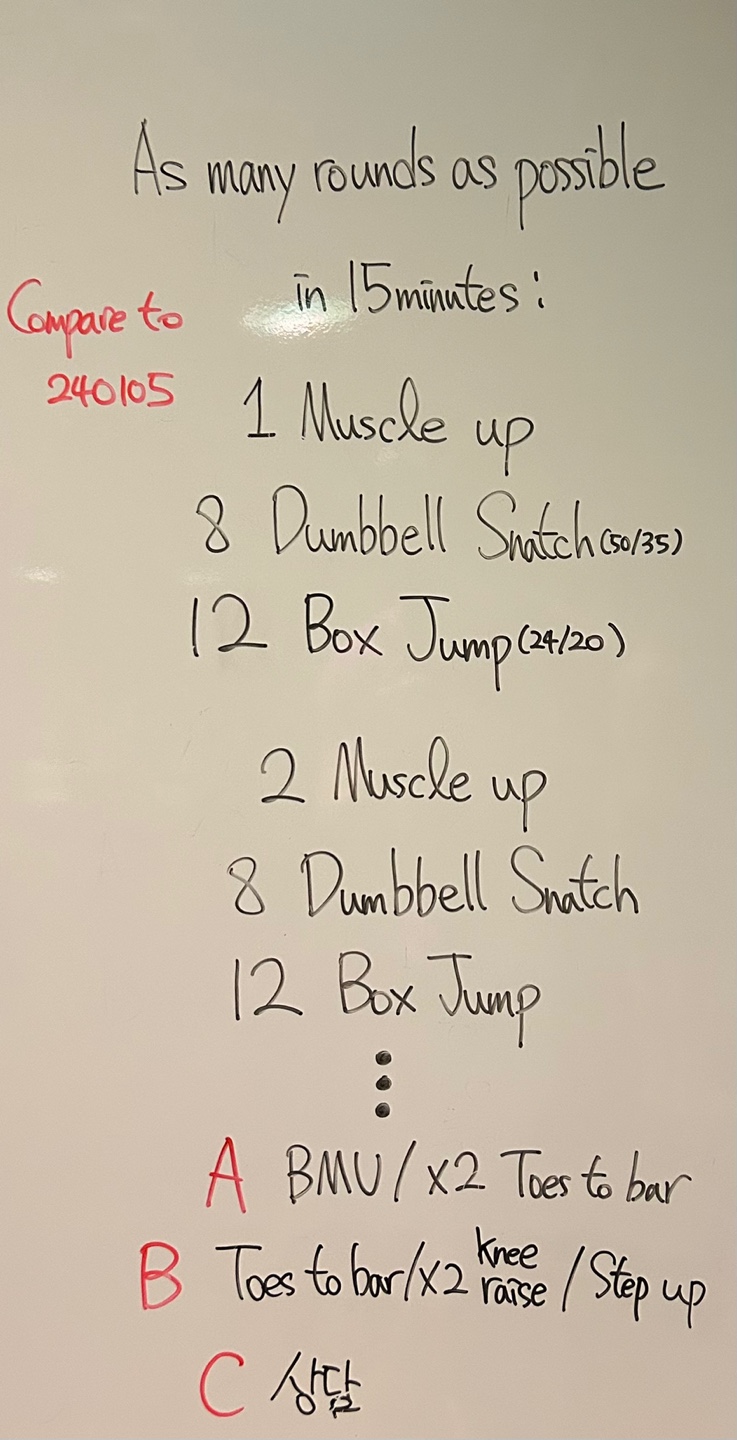 As many rounds as possible
in 15minutes:
Compare to
240105
1 Muscle up
8 Dumbbell Snatch (50/35)
12 Box Jump (24/20)
2 Muscle up
8 Dumbbell Snatch
12 Box Jump
A BMU/x2 Toes to bar
B Toes to bar/x2 knee raise / Step up
C 상담